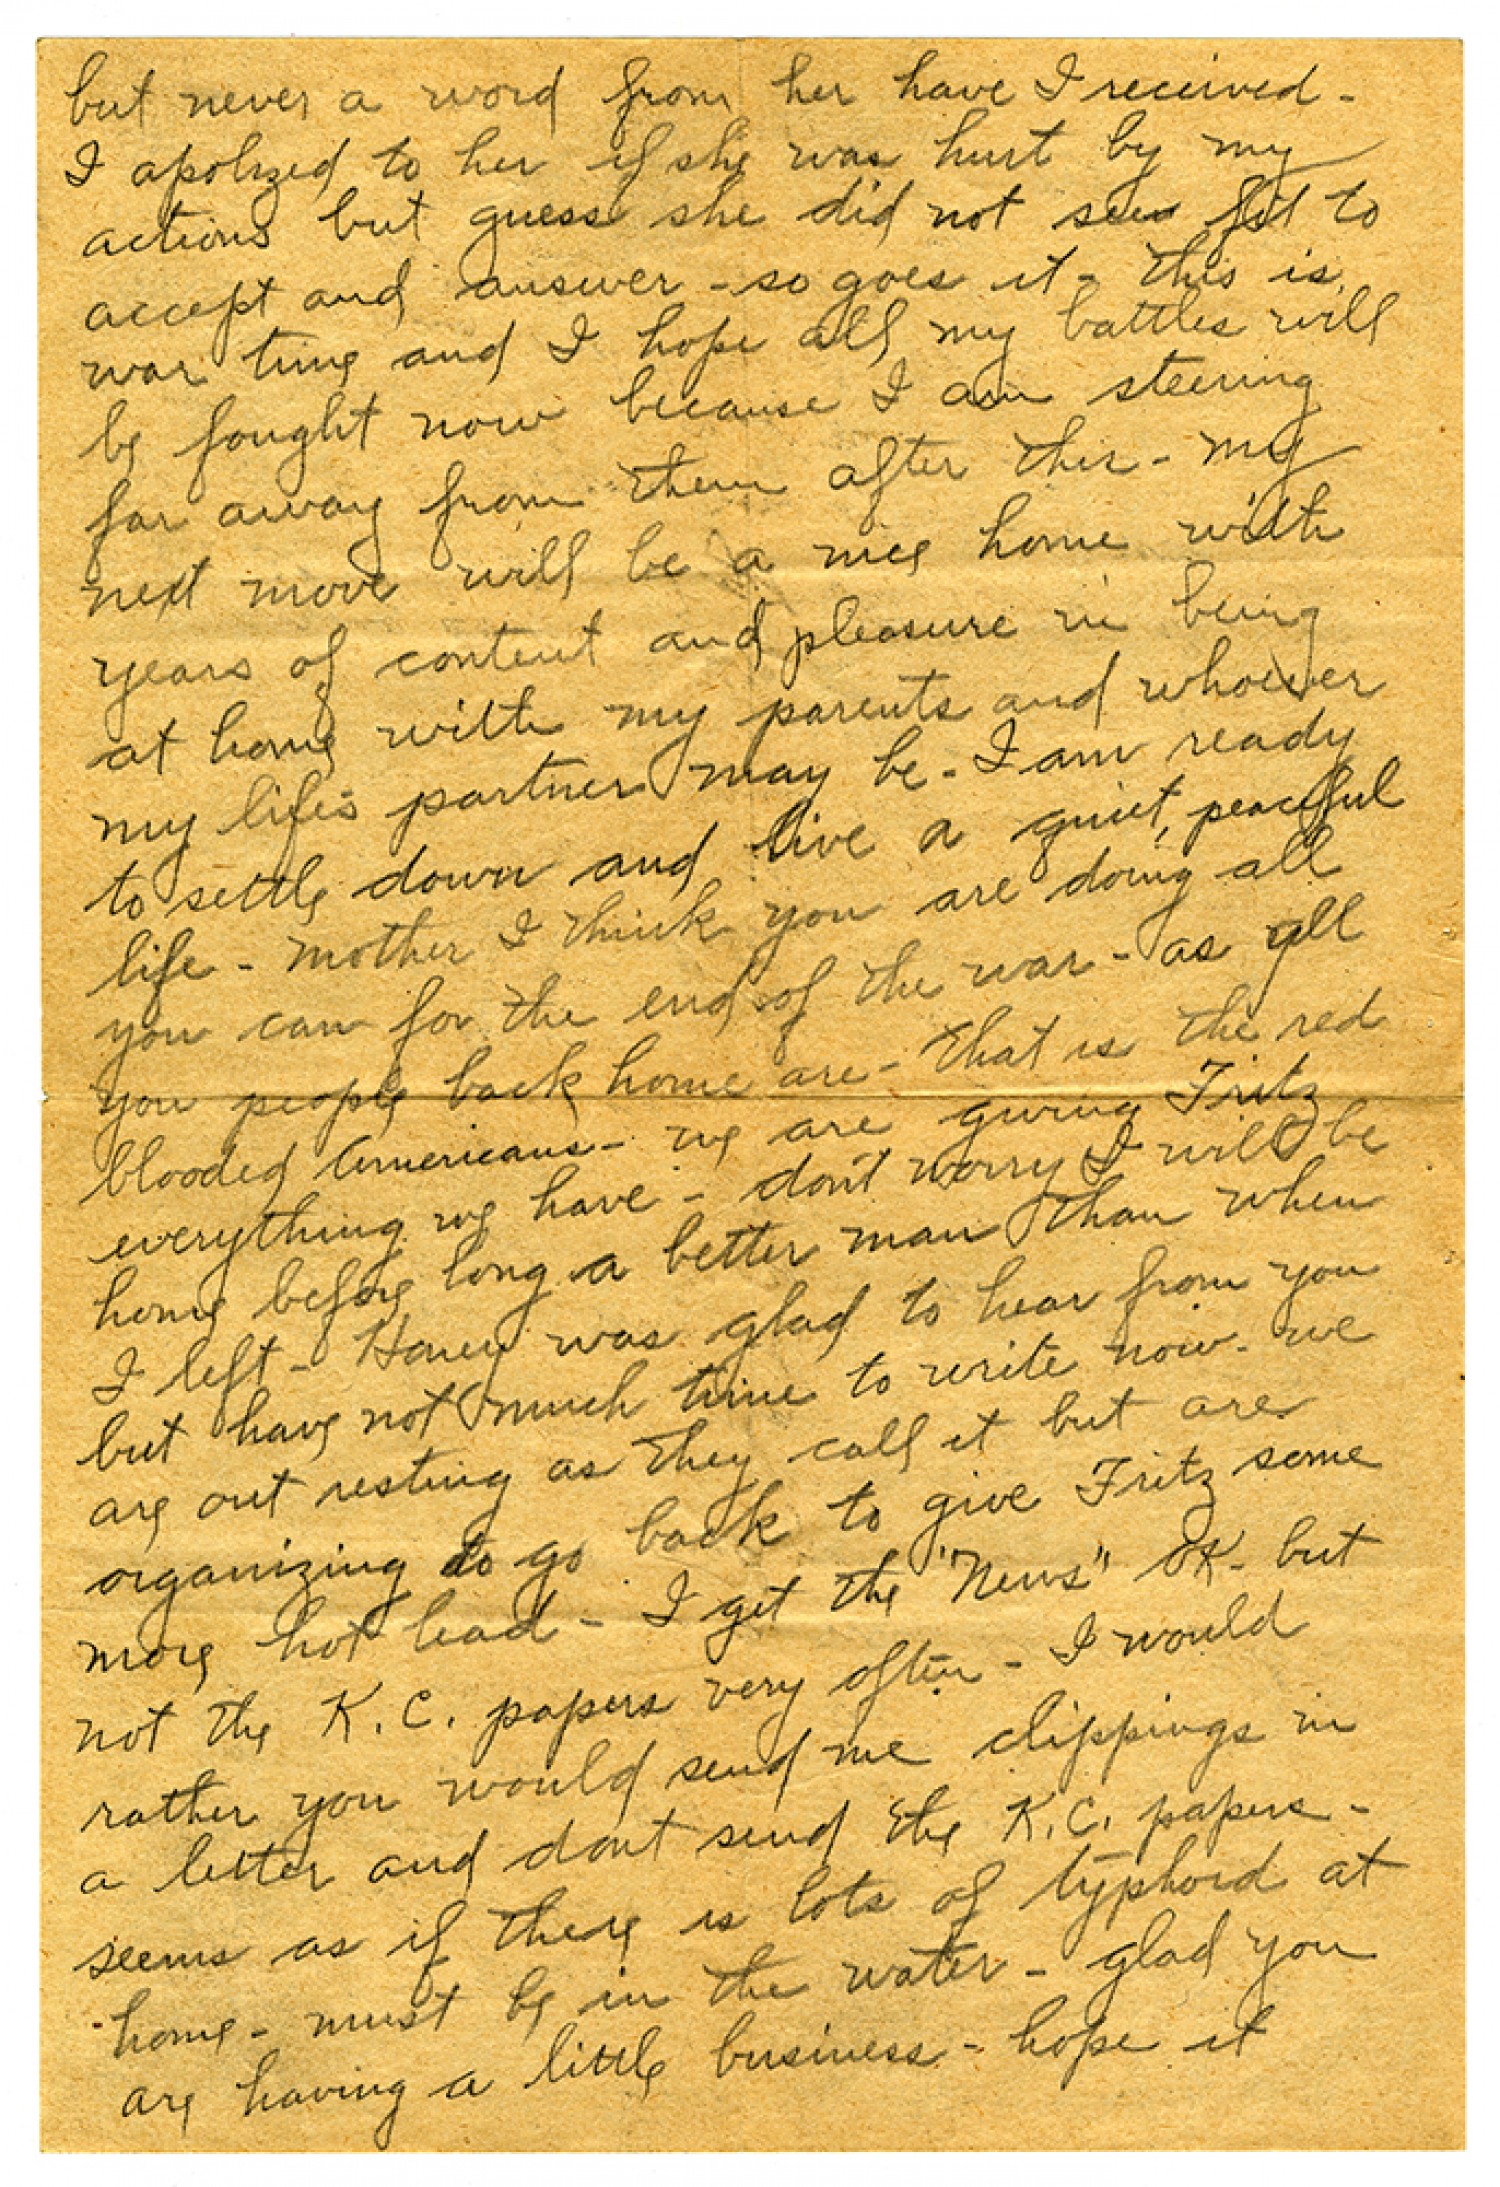 but never a word from her have I received -
I apolized to her if she was hurt by my
actions but guess she did not see fit to
accept and answer - so goes it - this is
war time and I hope all my battles will
be fought now because I am steering
far away from them after this - my
next move will be a nice home with
years of content and pleasure in being
at home with my parents and whoever
my life's partner may be - I am ready
to settle down and live a quiet, peaceful
life - mother I think you are doing all
you can for the end of the war - as all
you people back home are - that is the red
blooded Americans - we are giving Fritz
everything we have - don't worry I will be
home before long a better man than when
I left - Honey was glad to hear from you
but have not much time to write now - we
are out resting as they call it but are
organizing to go back to give Fritz some
more hot lead - I get the "News" OK - but
not the K.C. papers very often - I would
rather you would send me clippings in
a letter and dont send the K.C. papers -
seems as if there is lots of typhoid at
home - must be in the water - glad you
are having a little business - hope it